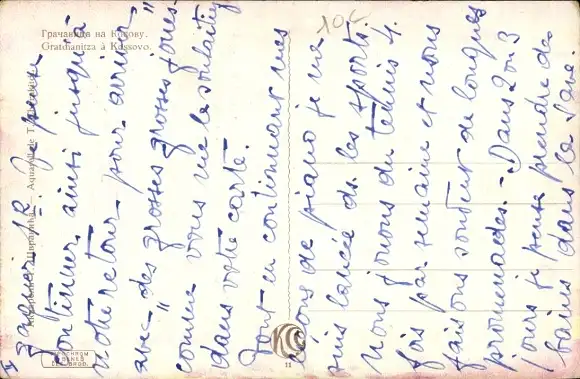 Грачаница на Косову.
Gratchanitza à Kossovo.
10c
II
Je pense
continuer ainsi jusqu'à
notre retour pour arriver
avec "des grosses joues"
comme vous me le souhaitez
dans votre carte.
Tout en continuant mes
leçons de piano je me
suis lancée ds. les sports.
Nous jouons du tennis 4
fois par semaine et nous
faisons souvent de longues
promenades. - Dans 2 ou 3
jours je pense prendre des
bains dans la Save.
11
КС